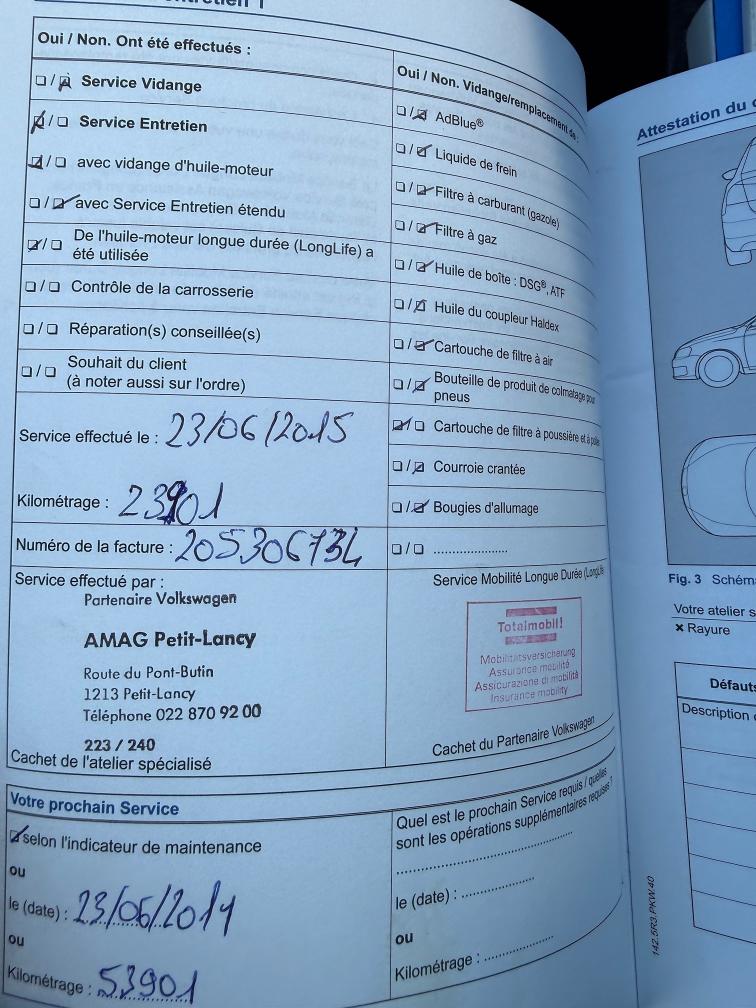 Oui / Non. Ont été effectués :
❏ / ☑ Service Vidange
☑ / ❏ Service Entretien
☑ / ❏ avec vidange d'huile-moteur
❏ / ☑ avec Service Entretien étendu
☑ / ❏ De l'huile-moteur longue durée (LongLife) a
été utilisée
❏ / ❏ Contrôle de la carrosserie
❏ / ❏ Réparation(s) conseillée(s)
❏ / ❏ Souhait du client
(à noter aussi sur l'ordre)
Service effectué le : 23/06/2015
Kilométrage : 23901
Numéro de la facture : 205306734
Service effectué par :
Partenaire Volkswagen
AMAG Petit-Lancy
Route du Pont-Butin
1213 Petit-Lancy
Téléphone 022 870 92 00
223 / 240
Cachet de l'atelier spécialisé
Oui / Non. Vidange/remplacement de :
❏ / ☑ AdBlue®
❏ / ☑ Liquide de frein
❏ / ☑ Filtre à carburant (gazole)
❏ / ☑ Filtre à gaz
❏ / ☑ Huile de boîte : DSG®, ATF
❏ / ☑ Huile du coupleur Haldex
❏ / ☑ Cartouche de filtre à air
❏ / ☑ Bouteille de produit de colmatage pour
pneus
☑ / ❏ Cartouche de filtre à poussière et à
❏ / ☑ Courroie crantée
❏ / ☑ Bougies d'allumage
❏ / ❏ .....................
Service Mobilité Longue Durée
Totalmobil!
Mobilitätsversicherung
Assurance mobilité
Assicurazione di mobilità
Insurance mobility
Cachet du Partenaire Volkswagen
Votre prochain Service
☑ selon l'indicateur de maintenance
ou
le (date) : 23/06/2017
ou
Kilométrage : 53901
Quel est le prochain Service requis / quelles
sont les opérations supplémentaires requises ?
le (date) : ..................
ou
Kilométrage : .................
Attestation du
Fig. 3 Schém
Votre atelier s
✖ Rayure
Défauts
Description
142.5R3.PKW.40